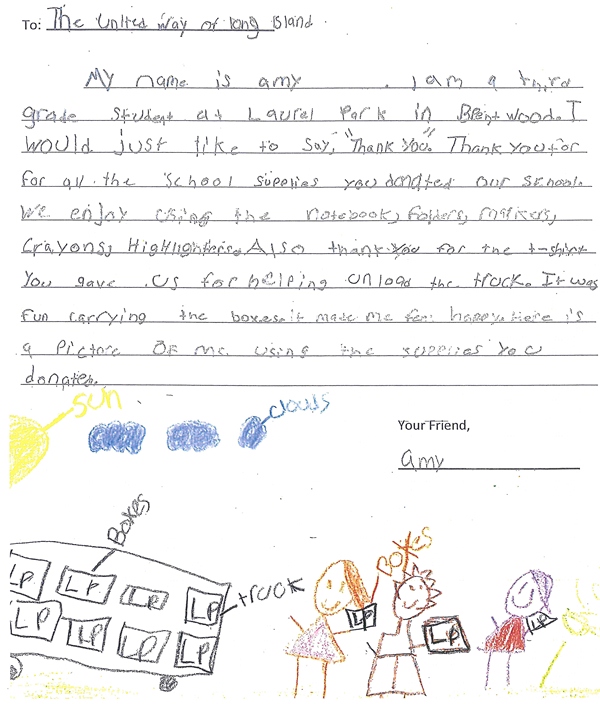 To: The United Way of long Island.
My name is amy . I am a third
grade student at Laurel Park in Brentwood. I
would just like to say, "Thank You." Thank you for
for all the school supplies you donated our school.
We enjoy using the notebook, folders, markers,
Crayons, Highlighters. Also thank you for the t-shirt
You gave us for helping unload the truck. It was
fun carrying the boxes. it made me feel happy. Here is
a Picture OF me using the supplies you
donated.
sun
clouds
Your Friend,
amy
Boxes
Boxes
LP LP LP LP
truck
LP LP LP LP
LP LP LP